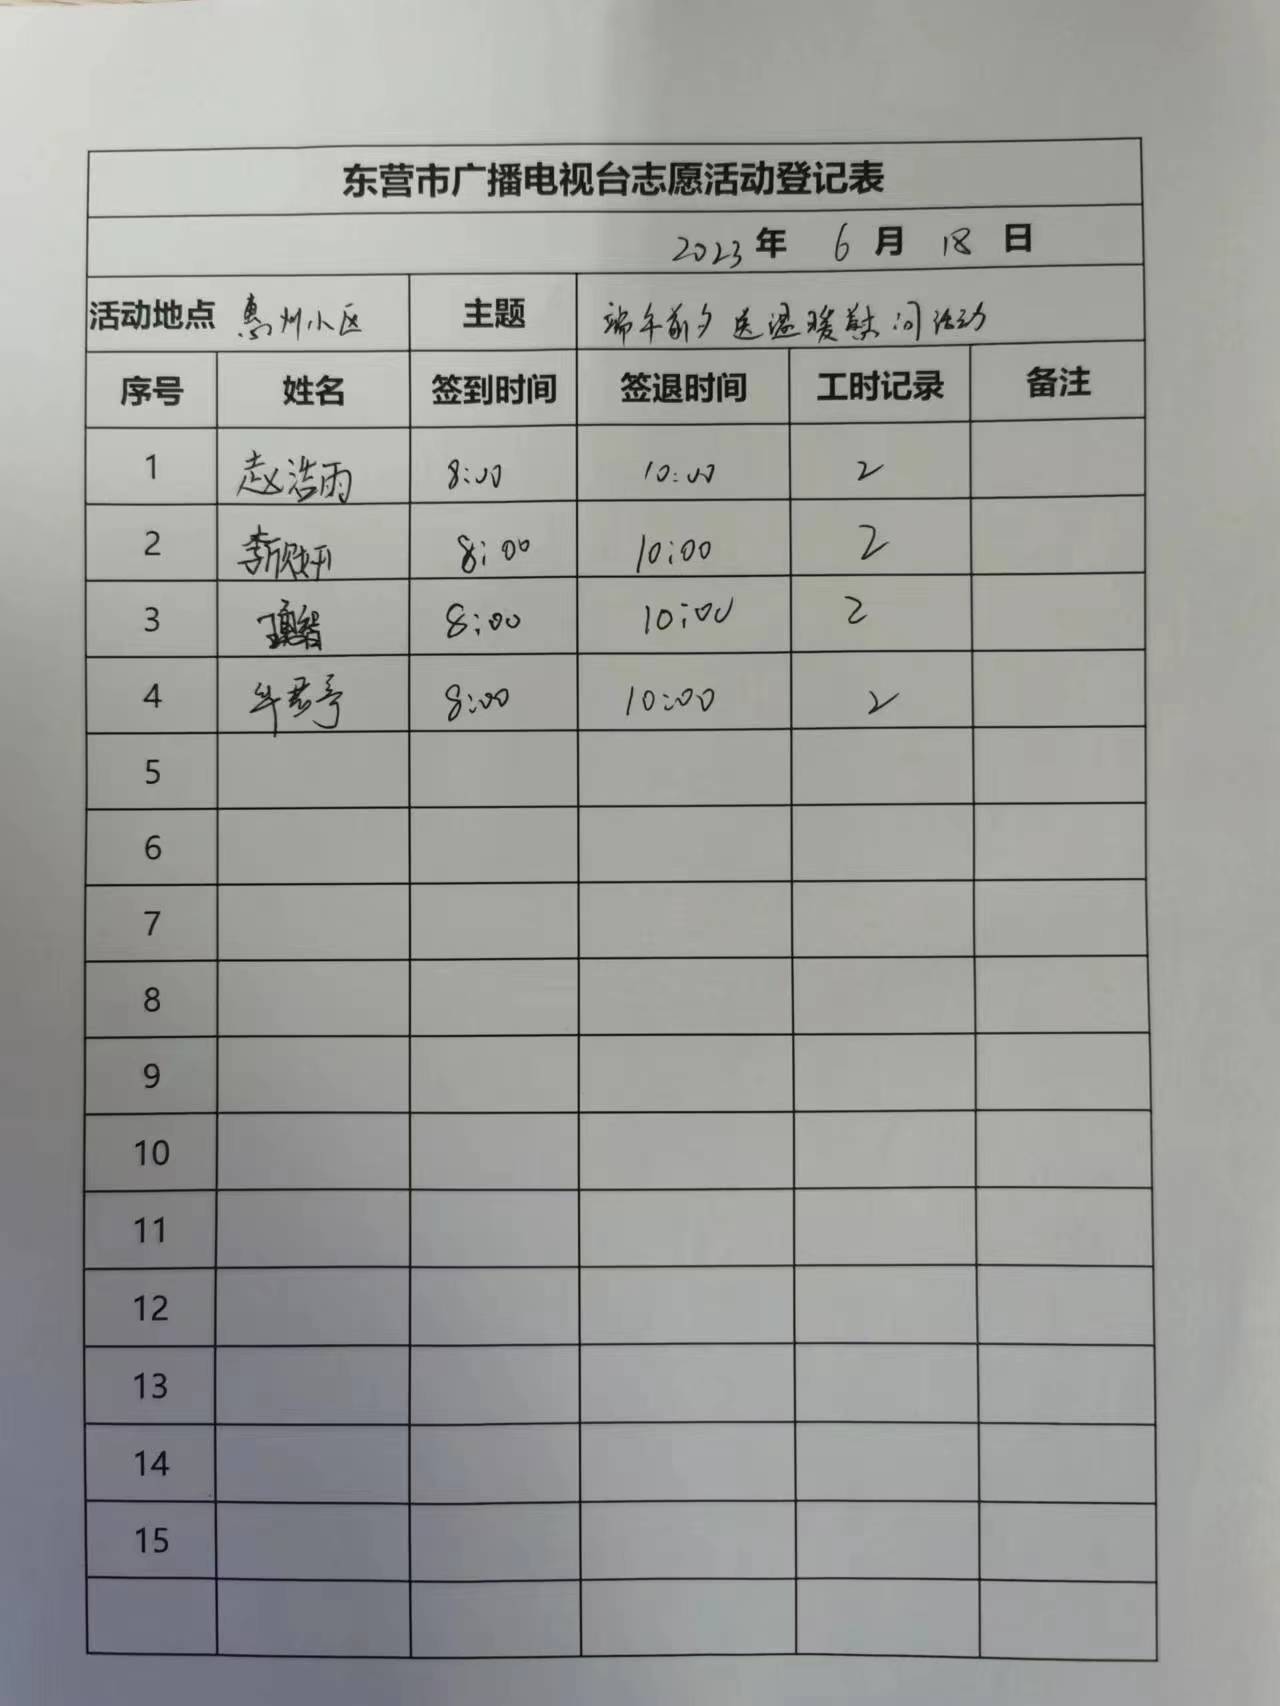 东营市广播电视台志愿活动登记表
2023年 6月 18日
活动地点 惠州小区 主题 端午前夕送温暖慰问活动
序号 姓名 签到时间 签退时间 工时记录 备注
1 赵浩雨 8:00 10:00 2
2 8:00 10:00 2
3 8:00 10:00 2
4 牛君亭 8:00 10:00 2
5
6
7
8
9
10
11
12
13
14
15